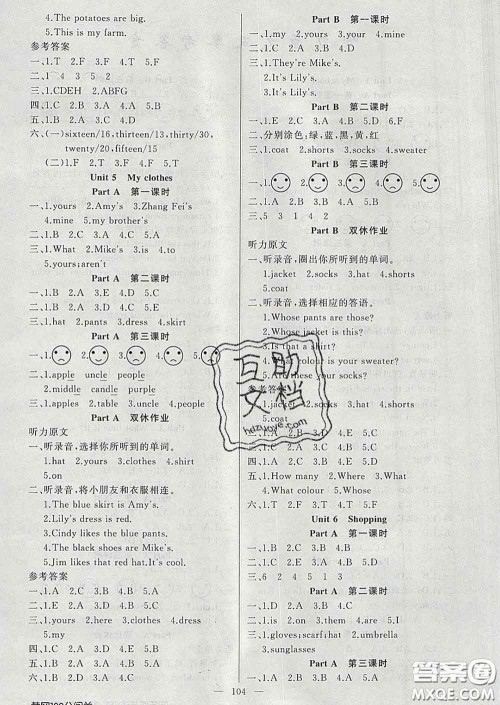 4.The potatoes are big.
5.This is my farm.
参考答案
一、1.T 2.F 3.F 4.T
二、1 4 3 5 2
三、1.CDEH 2.ABFG
四、1.C 2.A 3.B 4.A 5.B
五、1.T 2.F 3.T 4.F 5.T
六、(一)sixteen/16,thirteen/13,thirty/30,
twenty/20,fifteen/15
(二)1.U 2.U
Unit 5 My clothes
Part A 第一课时
一、1.yours 2.Amy's 3.Zhang Fei's
4.mine 5.my brother's
二、1.B 2.A 3.A 4.B
三、1.What 2.Mike's 3.is 4.to
5.yours;aren't
Part A 第二课时
一、1.D 2.A 3.E 4.C 5.B
二、1.B 2.A 3.A 4.A
三、1.hat 2.pants 3.dress 4.skirt
Part A 第三课时
一、1. 2. 3. 4. 5.
二、1.apple uncle people
2.middle candle people
三、1.apple 2.table 3.uncle 4.people
Part A 双休作业
听力原文
一、听录音,选择你所听到的单词。
1.hat 2.yours 3.clothes 4.shirt
5.on
二、听录音,将小朋友和衣服相连。
1.The blue skirt is Amy's.
2.Lily's dress is red.
3.Cindy likes the blue pants.
4.The black shoes are Mike's.
5.Jim likes that red hat.It's cool.
参考答案
一、1.A 2.C 3.B 4.B 5.A
二、1.E 2.C 3.A 4.D 5.B
三、1.yours 2.are 3.clothes 4.dress
5.my
四、1.D 2.C 3.A 4.B
五、1.A 2.C 3.A 4.C 5.A
六、1.B 2.C 3.A 4.D 5.A
Part B 第一课时
一、1.my 2.yours 3.your 4.mine
三、1.They're Mike's.
2.It's Lily's.
3.It's Lily's.
Part B 第二课时
一、1.C 2.A 3.B 4.D 5.E 6.F
二、分别涂色:绿,蓝,黑,黄,红
三、1.coat 2.shorts 3.socks 4.sweater
Part B 第三课时
一、1. 2. 3. 4. 5.
二、1.coat 2.shirt 3.socks 4.shorts
Part B 双休作业
听力原文
一、听录音,圈出你所听到的单词。
1.jacket 2.socks 3.hat 4.shorts
5.coat
二、听录音,选择相应的答语。
1.Whose pants are those?
2.Whose jacket is this?
3.Is that a skirt?
4.What colour is your sweater?
5.Whose coat is this?
参考答案
一、1.jacket 2.socks 3.hat 4.shorts
5.coat
二、1.A 2.B 3.D 4.E 5.C
三、1.C 2.A 3.D 4.B
四、1.A 2.A 3.B 4.C 5.A
五、1.How many 2.Where 3.Whose
4.What colour 5.Whose
六、1.T 2.F 3.F 4.T 5.F
Unit 6 Shopping
Part A 第一课时
一、1.B 2.C 3.A 4.B 5.B
二、1.B 2.C 3.A 4.D
三、6 2 4 5 1 3
Part A 第二课时
一、1.D 2.A 3.B 4.C
二、1.is 2.on 3.them 4.are 5.I
三、1.gloves;scarf;hat 2.umbrella
3.sunglasses
Part A 第三课时
104
互助文档
hdzuoye.com
答案圈
MXQE.COM